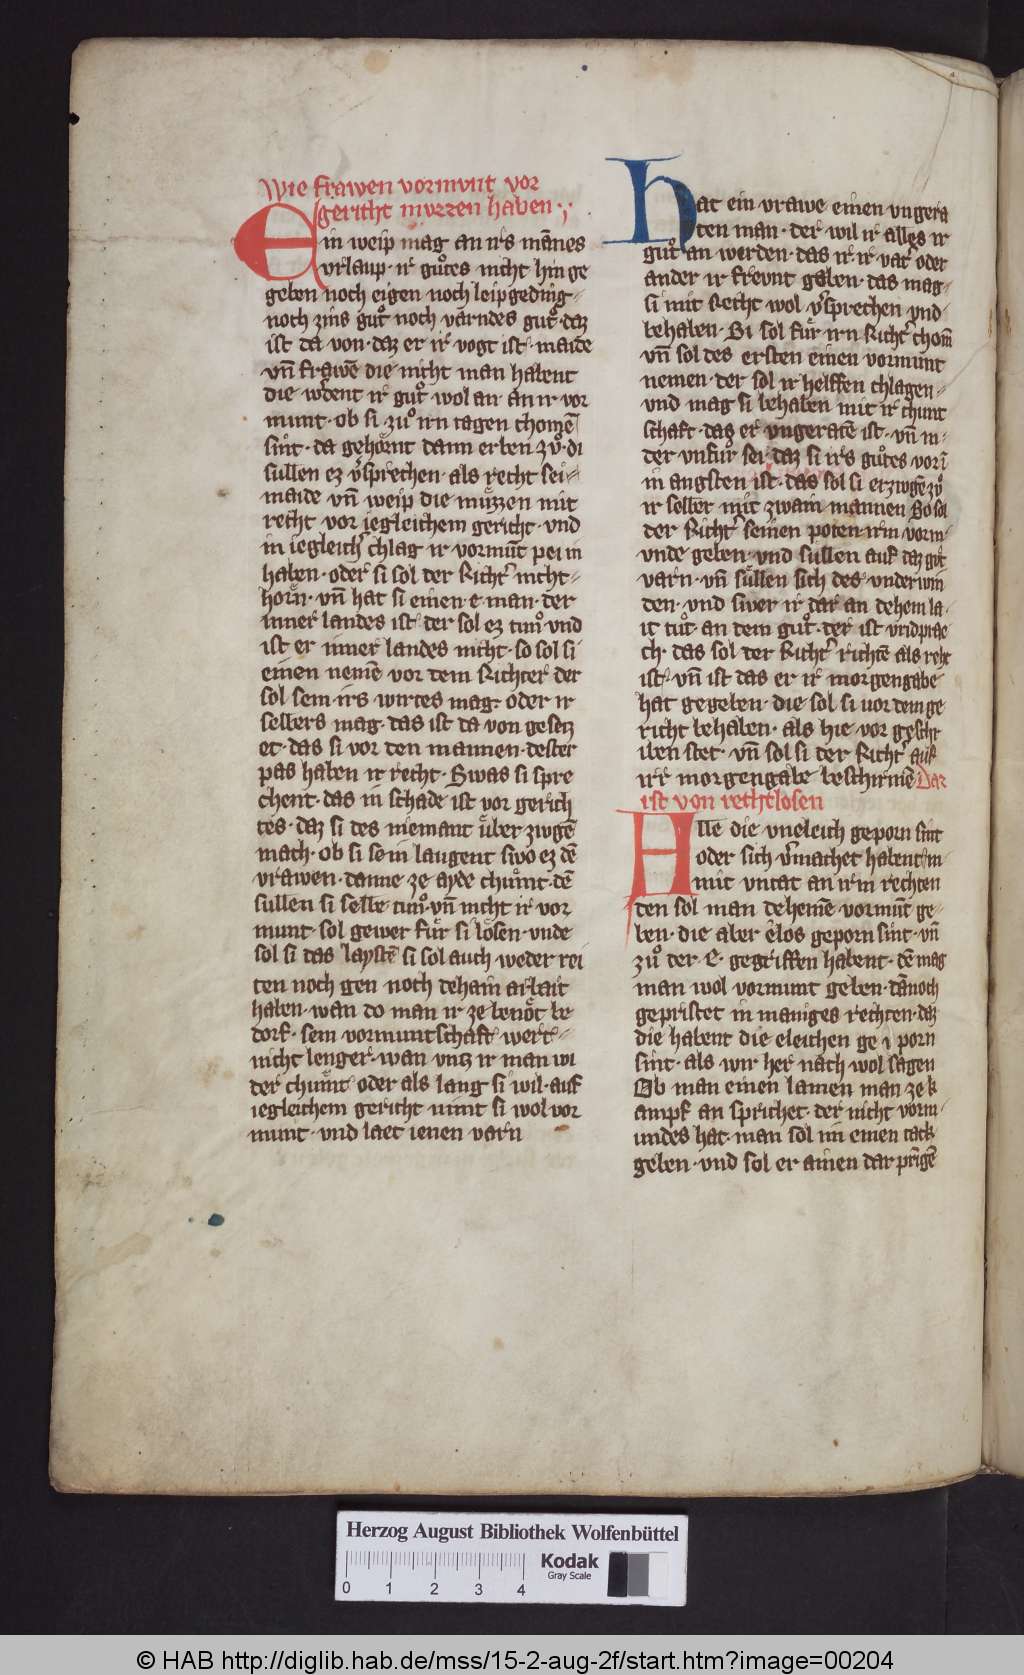 Wie frawen vormunt vor
gericht mvzzen haben
Ein weip mag an irs mānes
vrlaup · ir guͦtes nicht hin ge
geben noch eigen noch leipgeding
noch zins guͦt noch varndes guͦt · daz
ist da von · daz er ir vogt ist · maide
vn̄ frawē die nicht man habent
die w̾dent ir guͦt wol an an ir vor
munt · ob si zuͦ irn tagen chomē
sint · da gehoͤrnt dann erben zvͦ · di
sullen ez v̾sprechen · als recht sei
maide vn̄ weip die muͤzzen mit
recht vor iegleichem gericht · vnd
in iegleich̾ chlag ir vormūt pei in
haben · oder si sol der Richt̾ nicht
horn · vn̄ hat si einen · e · man · der
inner landes ist · der sol ez tuͦn · vnd
ist er inner landes nicht · so sol si
einen nemē vor dem Richter der
sol sein irs wirtes mag · oder ir
selbers mag · das ist da von gesetz
et · das si vor den mannen · dester
pas haben ir recht · Swas si spre
chent · das in schade ist vor gerich
tes · daz si des niemant uͤber zwgē
mach · ob si sein laugent swo ez dē
vrawen · danne ze ayde chuͤmt · dē
sullen si selbe tuͦn · vn̄ nicht ir vor
munt · sol gewer fuͤr si loͤsen · vnde
sol si das laystē si sol auch weder rei
ten noch gen noch dehain arbait
haben · wan do man ir ze benoͤt be
dorf · sein vormuntschaft wert
nicht lenger · wan vntz ir man wi
der chuͤmt oder als lang si wil · auf
iegleichem gericht nimt si wol vor
munt · vnd laet ienen varn
Hat ein vrawe einen vngera
ten man · der wil ir alles ir
guͦt an werden · das ir ir vat̾ oder
ander ir frevnt gaben · das mag
si mit Recht wol v̾sprechen vnd
behaben · Si sol fuͤr irn Richt̾ chom̄
vn̄ sol des ersten einen vormunt
nemen · der sol ir helffen chlagen
vnd mag si behaben mit ir chunt
schaft · daz er vngeratē ist · vn̄ in
der vnfuͦr sei · daz si irs guͦtes vor ī
in angsten ist · das sol si erzwgē zvͦ
ir selber mit zwain mannen So sol
der Richt̾ seinen poten irm vorm
vnde geben · vnd sullen auf daz guͦt
varn · vn̄ suͤllen sich des vnderwin
den · vnd swer ir dar an dehein la
it tuͦt · an dem guͦt · der ist vridpræ
ch · das sol der Richt̾ richtē als reht
ist · vn̄ ist das er ir morgengabe
hat gegeben · die sol si vor dem ge
richt behaben · als hie vor geschr
iben stet · vn̄ sol si der Richt̾ auf
irr morgengabe beschirmē Daz
ist von rechtlosen
Alle die vneleich geporn sint
oder sich v̾machet habent m
mit vntat an irm rechten
den sol man dehenē vormūt ge
ben · die aber elos geporn sint · vn̄
zuͦ der · E · gegriffen habent · dē mag
man wol vormunt geben · dānoch
gepristet in maniges rechten · daz
die habent die eleichen ge porn
sint · als wir her nach wol sagen
Ob man einen lamen man ze k
ampf an sprichet · der nicht vorm
undes hat · man sol im einen tack
geben · vnd sol er ainen dar prīgē
Herzog August Bibliothek Wolfenbüttel
0 1 2 3 4
Kodak
Gray Scale
© HAB http://diglib.hab.de/mss/15-2-aug-2f/start.htm?image=00204